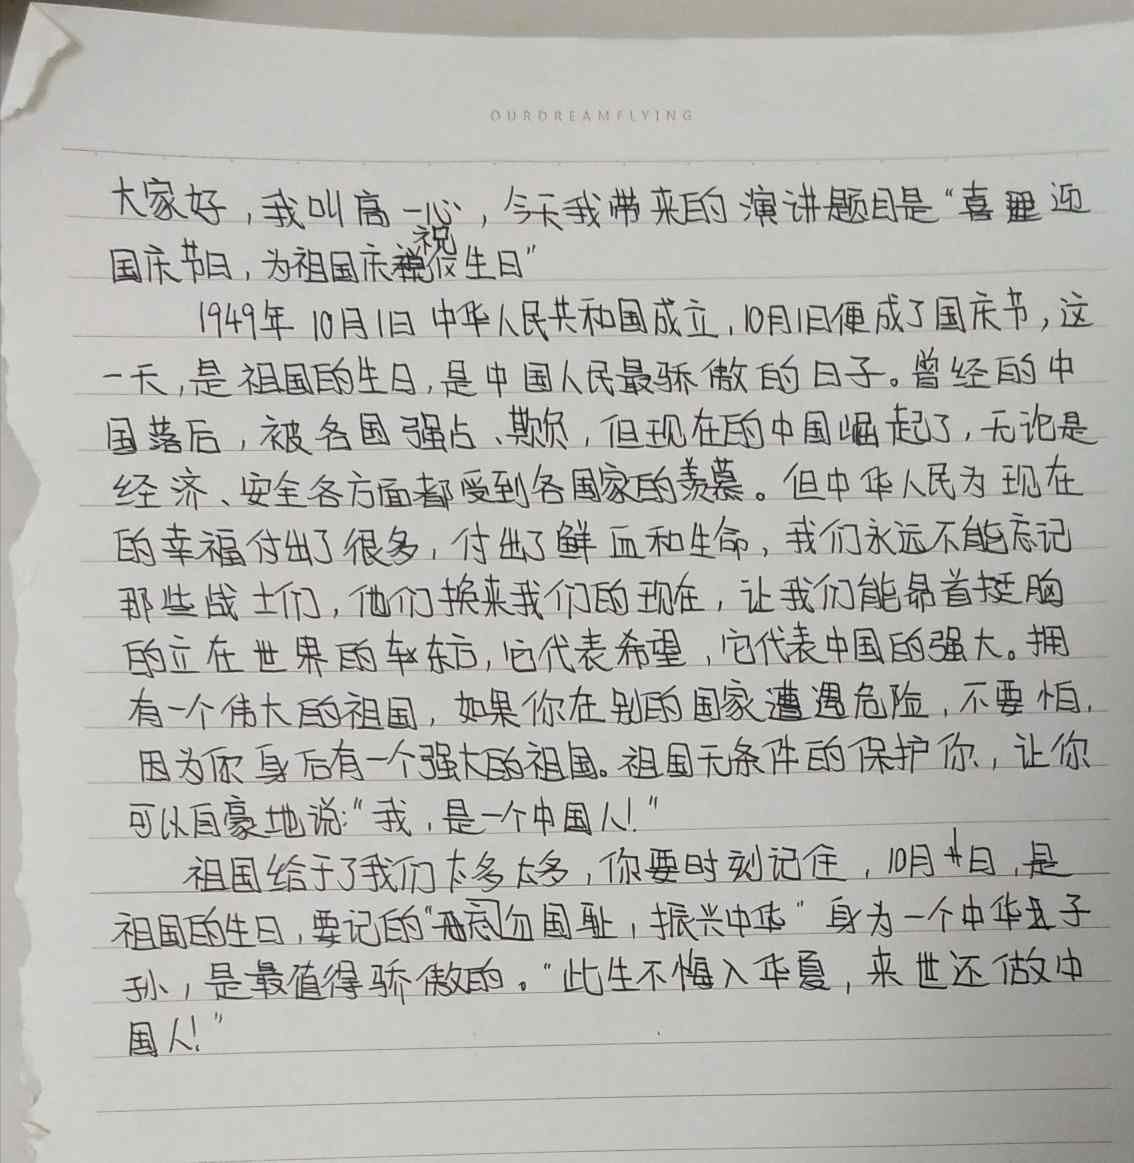 OURDREAMFLYING
大家好，我叫高一心，今天我带来的演讲题目是“喜迎
国庆节日，为祖国庆祝生日”
1949年10月1日中华人民共和国成立，10月1日便成了国庆节，这
一天，是祖国的生日，是中国人民最骄傲的日子。曾经的中
国落后，被各国强占、欺负，但现在的中国崛起了，无论是
经济、安全各方面都受到各国家的羡慕。但中华人民为现在
的幸福付出了很多，付出了鲜血和生命，我们永远不能忘记
那些战士们，他们换来我们的现在，让我们能昂首挺胸
的立在世界的东方，它代表希望，它代表中国的强大。拥
有一个伟大的祖国，如果你在别的国家遭遇危险，不要怕，
因为你身后有一个强大的祖国。祖国无条件的保护你，让你
可以自豪地说：“我，是一个中国人！”
祖国给于了我们太多太多，你要时刻记住，10月1日，是
祖国的生日，要记的“勿国耻，振兴中华”身为一个中华子
孙，是最值得骄傲的。“此生不悔入华夏，来世还做中
国人！”